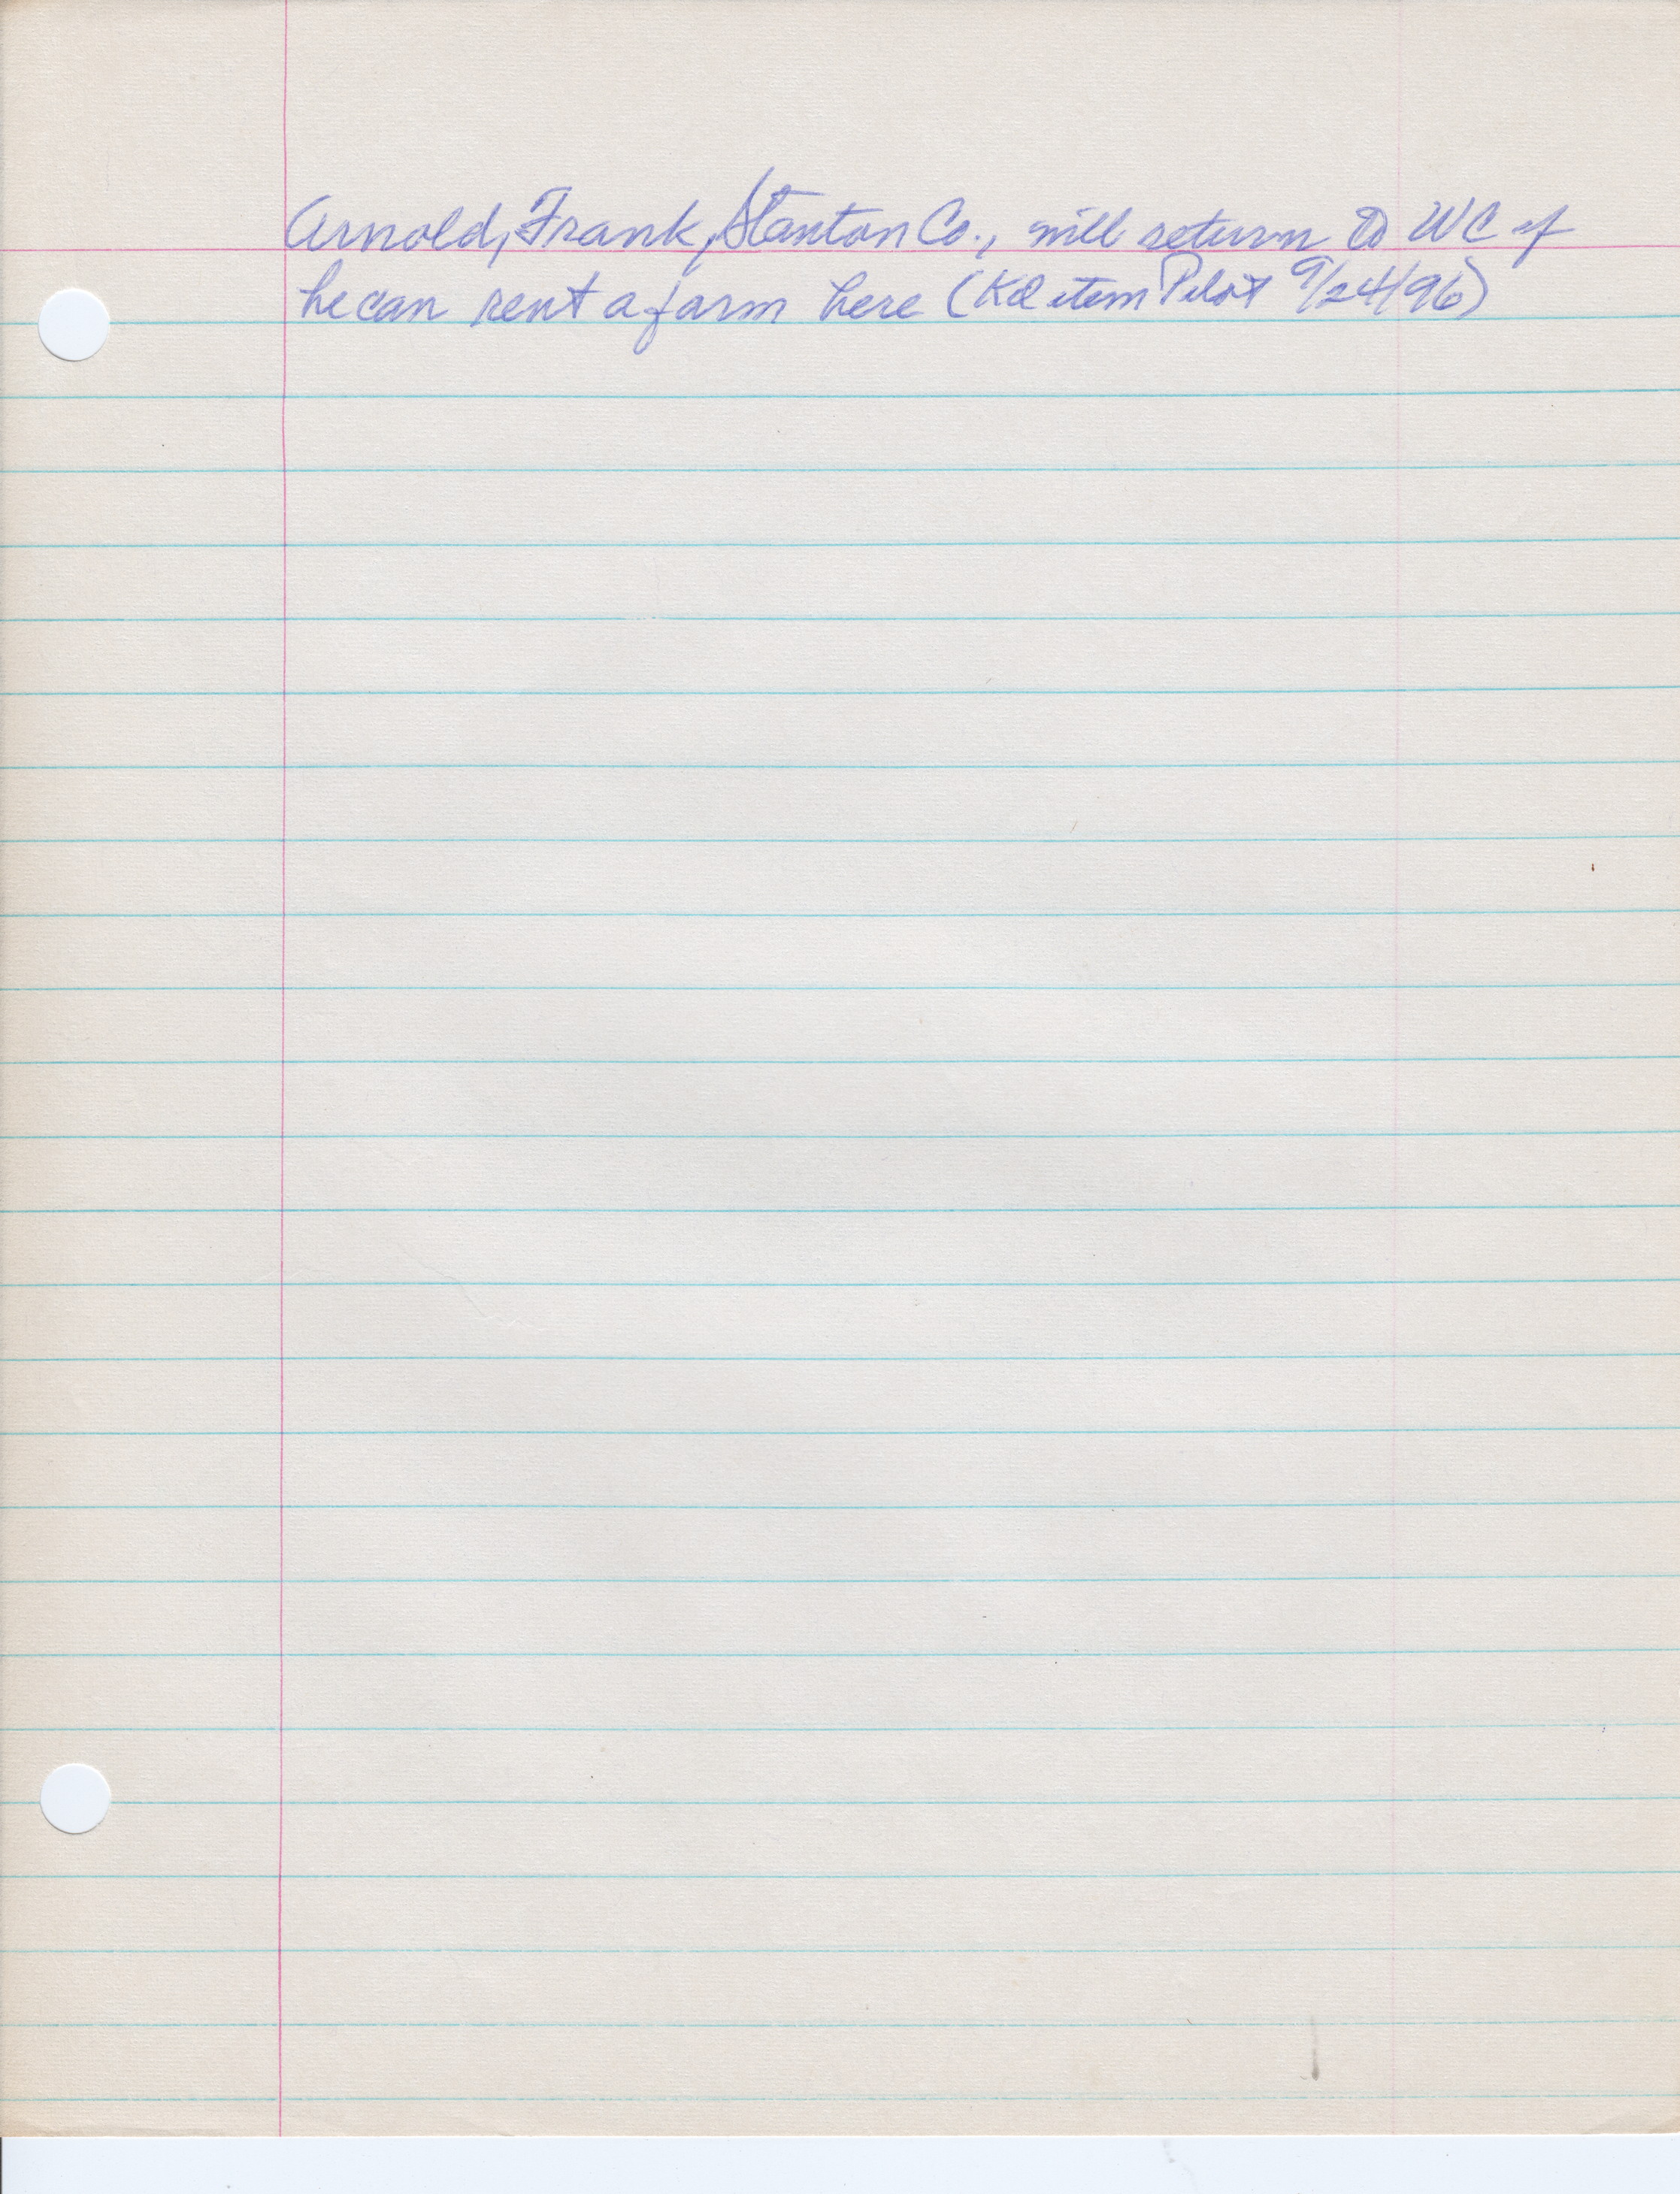 Arnold, Frank, Stanton Co., will return to WC if
he can rent a farm here (Kd item Pilot 9/24/96)